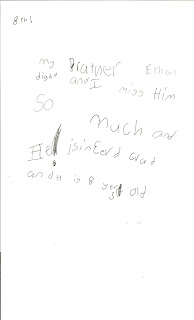 my Brather Ethan
dight and I miss Him
So
much and
He isin Eerd grad
and H is 8 years old